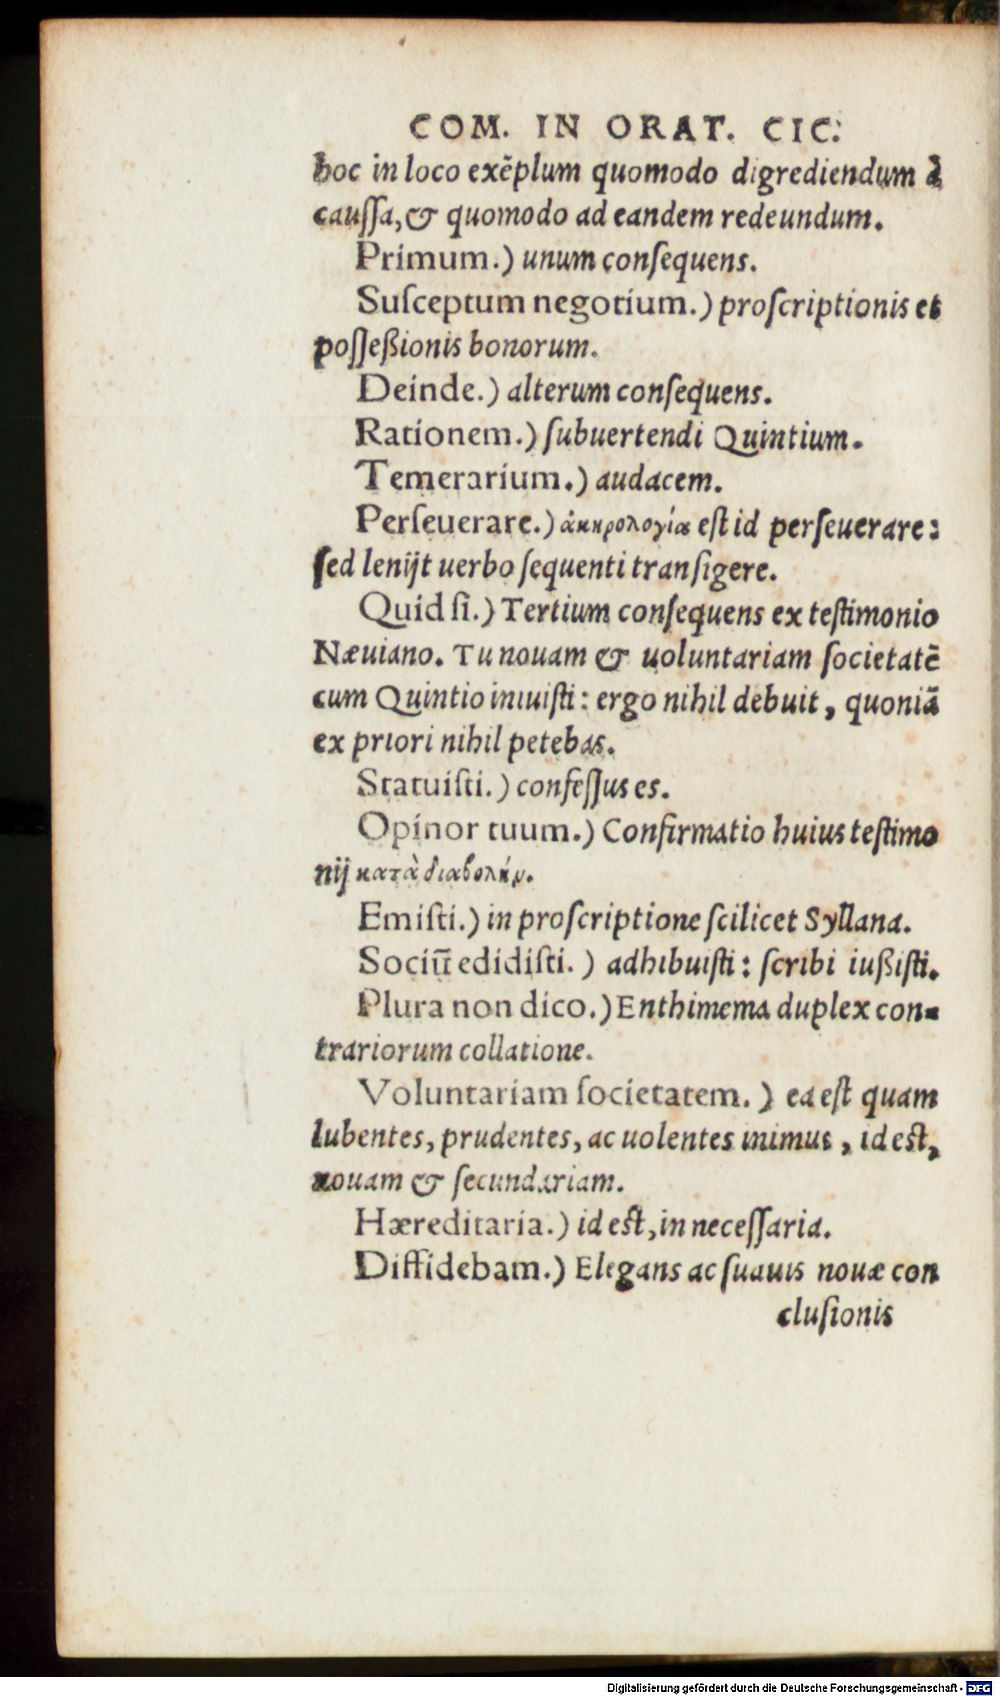 COM. IN ORAT. CIC.
hoc in loco exẽplum quomodo digrediendum à
cauſſa, & quomodo ad eandem redeundum.
Primum.) unum conſequens.
Suſceptum negotium.) proſcriptionis et
poſſeßionis bonorum.
Deinde.) alterum conſequens.
Rationem.) ſubuertendi Quintium.
Temerarium.) audacem.
Perſeuerare.) ἀκυρολογία eſt id perſeuerare:
ſed lenijt uerbo ſequenti tranſigere.
Quid ſi.) Tertium conſequens ex teſtimonio
Næuiano. Tu nouam & uoluntariam ſocietatẽ
cum Quintio iniuiſti: ergo nihil debuit, quoniã
ex priori nihil petebas.
Statuiſti.) confeſſus es.
Opinor tuum.) Confirmatio huius teſtimo
nij κατὰ διαβολήν.
Emiſti.) in proſcriptione ſcilicet Syllana.
Sociũ edidiſti.) adhibuiſti: ſcribi iußiſti.
Plura non dico.) Enthimema duplex con-
trariorum collatione.
Voluntariam ſocietatem.) ea eſt quam
lubentes, prudentes, ac uolentes inimus, id eſt,
nouam & ſecundariam.
Hæreditaria.) id eſt, in neceſſaria.
Diffidebam.) Elegans ac ſuauis nouæ con
cluſionis
Digitalisierung gefördert durch die Deutsche Forschungsgemeinschaft - DFG